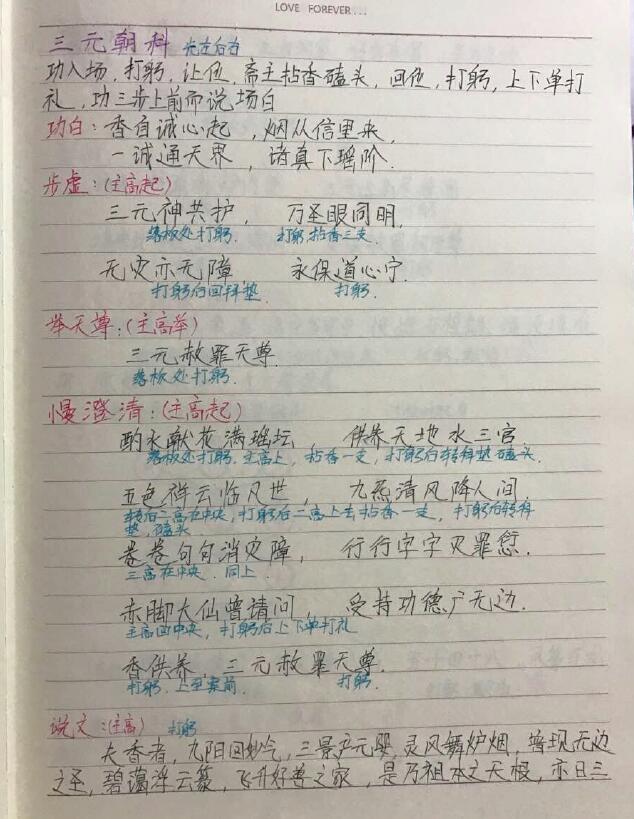 LOVE FOREVER...
三元朝科 先左后右
功入场，打躬，让位，斋主拈香磕头，回位，打躬，上下单打
礼，功三步上前而说场白
功白：香自诚心起，烟从信里来，
一诚通天界，诸真下瑶阶.
步虚：(主高起)
三元神共护，万圣眼同明，
落板处打躬. 打躬，拈香三支.
无灾亦无障 永保道心宁.
打躬后回拜垫. 打躬.
举天尊：(主高举)
三元赦罪天尊.
落板处打躬.
慢澄清：(主高起)
酌水献花满瑶坛，供养天地水三官
落板处打躬. 主高上，拈香一支，打躬后转拜垫磕头.
五色祥云临凡世，九炁清风降人间.
转后二高在中央，打躬后二高上去拈香一支，打躬后转拜
垫，磕头
卷卷句句消灾障，行行字字灭罪愆.
三高在中央. 同上.
赤脚大仙曾请问，受持功德广无边.
主高回中央，打躬后上下单打礼
香供养，三元赦罪天尊.
打躬. 上至案前. 打躬.
说文：(主高) 打躬
夫香者，九阳回妙气，三景产元婴，灵风舞炉烟，普现无边
之圣，碧蔼浮云篆，飞升好善之家，是乃祖本之天极，亦曰三